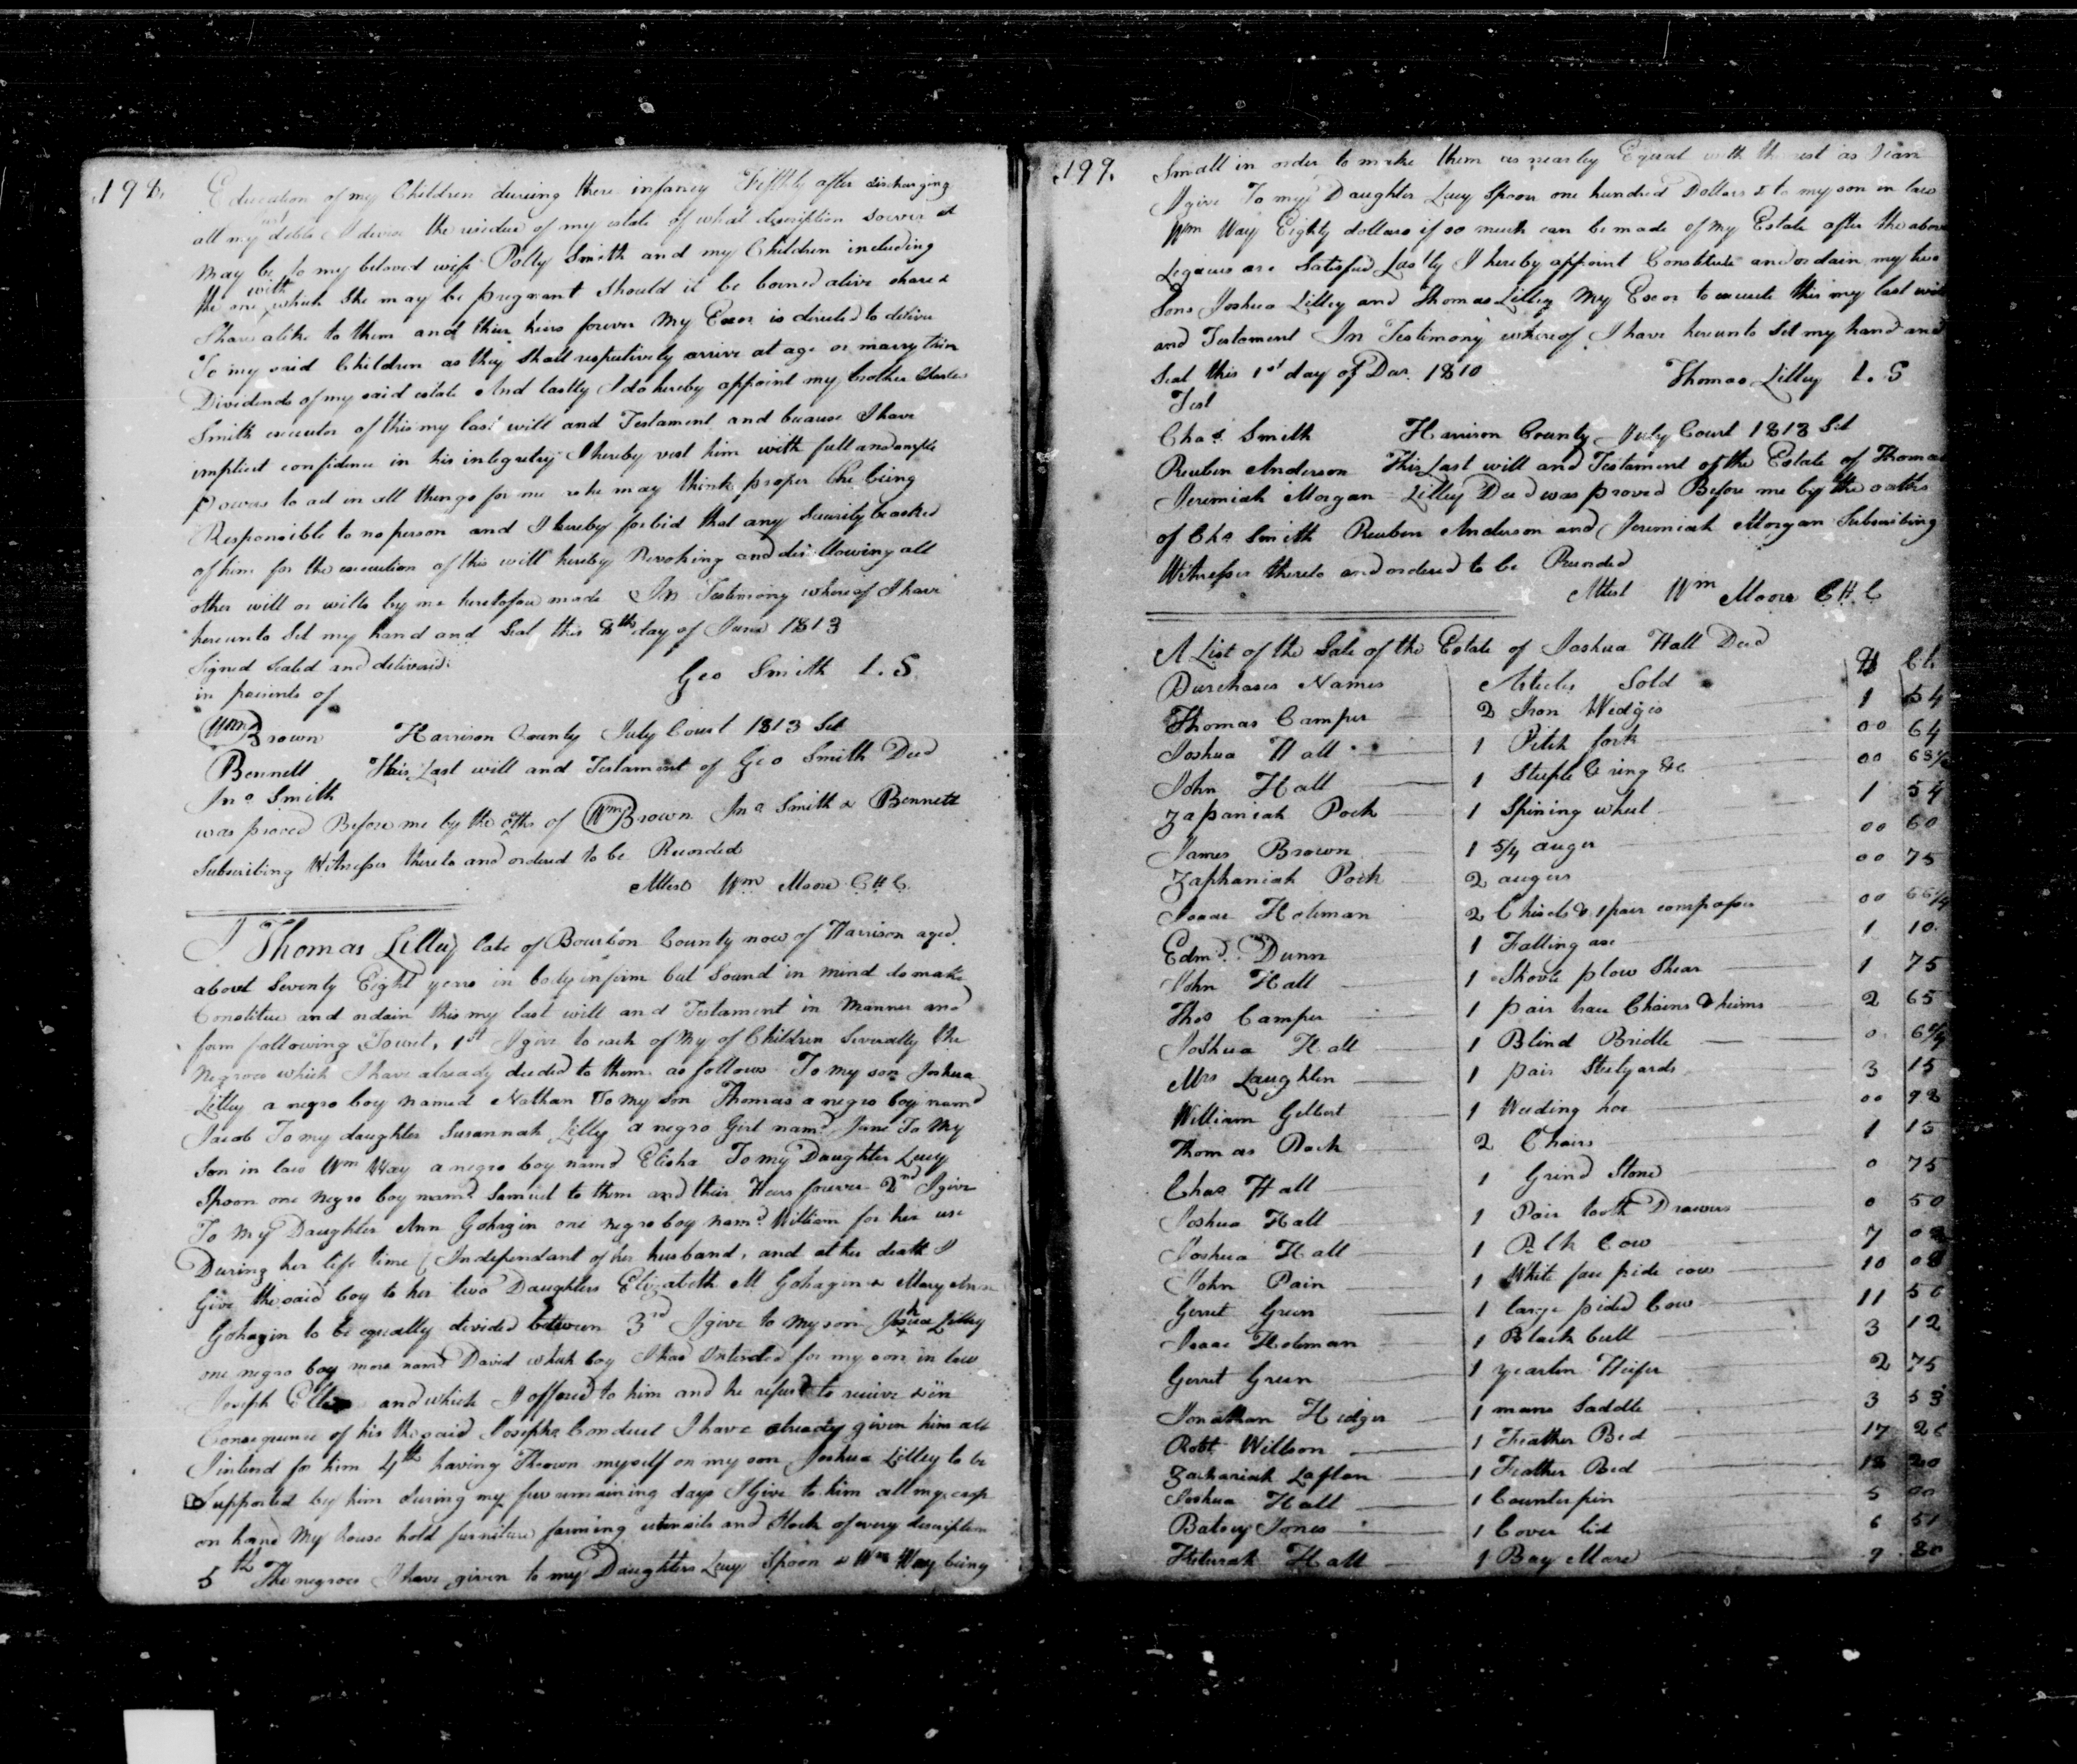 198
Education of my Children dureing there infancy Fifthly after discharging
all my just debts I devise the residue of my estate of what discription soever it
may be to my beloved wife Polly Smith and my Children including
the one with which She may be pregnant should it be borned alive share &
Share alike to them and their heirs forever My Exor is directed to deliver
To my said Children as they Shall respectively arrive at age or marry their
Dividends of my said estate And lastly I do hereby appoint my brother Charles
Smith executor of this my last will and Testament and because I have
implicit confidence in his integretry I hereby vest him with full and ample
Powers to act in all things for me as he may think proper he being
Responsible to no person and I hereby forbid that any Security be asked
of him for the execution of this will hereby Revoking and disallowing all
other will or wills by me heretofore made In Testimony whereof I have
hereunto Set my hand and Seal this 8th day of June 1813
Signed Sealed and delivered
in presents of
Geo Smith L.S
Wm Brown Harrison County July Court 1813 Sct
Bennett This Last will and Testament of Geo Smith Decd
Jno Smith
was proved Before me by the oths of Wm Brown Jno Smith & Bennett
Subscribing Witnesses thereto and ordered to be Recorded
Attest Wm Moore C H C.
I Thomas Lilley late of Bourbon County now of Harrison aged
about Seventy Eight years in body infirm but Sound in mind do make
Constitue and ordain this my last will and Testament in Manner and
form following Towit, 1st I give to each of My of Children Severally the
Negroes which I have already deeded to them as follows To my son Joshua
Lilley a negro boy named Nathan To my son Thomas a negro boy namd
Jacob To my daughter Susannah Lilly a negro Girl namd Jane To My
Son in law Wm Way a negro boy namd Elisha To my Daughter Lucy
Spoon one negro boy namd Samuel to them and their Heirs forever 2nd I give
To My Daughter Ann Gohagin one negro boy namd William for her use
During her life time (Independant of her husband, and at her death I
Give the said boy to her two Daughters Elizabeth M Gohagin & Mary Ann
Gohagin to be equally devided between 3rd I give to my son Joshua Lilley
one negro boy more namd David which boy I had Intended for my son in law
Joseph and which I offered to him and he refusd to recieve & in
Consequence of his the said Josephs Conduct I have already given him all
I intend for him 4th having Thrown myself on my son Joshua Lilley to be
Supported by him during my few remaining days I Give to him all my crop
on hand My house hold furniture farming utensils and Stock of every description
5th The negroes I have given to my Daughters Lucy Spoon & Wm Way being
199.
Small in order to make them as nearley Equal with the rest as I can
I give To my Daughter Lucy Spoon one hundred Dollars & to my son in law
Wm Way Eighty dollars if so much can be made of My Estate after the above
Legacies are Satisfied Lastly I hereby appoint Constitute and ordain my two
Sons Joshua Lilley and Thomas Lilley My Exor to execute this my last will
and Testament In Testimony whereof I have hereunto Set my hand and
Seal this 1st day of 1810 Thomas Lilley L. S
Test
Chas. Smith Harrison County July Court 1813 Sct
Reuben Anderson This Last will and Testament of the Estate of Thomas
Jeremiah Morgan Lilley Decd was proved Before me by the oaths
of Chs Smith Reuben Anderson and Jeremiah Morgan Subscribing
Witnesses thereto and ordered to be Recorded
Attest Wm Moore C H. C
A List of the Sale of the Estate of Joshua Hall Decd
Purchases Names Articles Sold $ Cts
Thomas Camper 2 Iron Wedges 1 54
Joshua Hall 1 Pitch fork 00 64
John Hall 1 Steeple & ring &c 00
Zapaniah Pock 1 Spining wheel 1 54
James Brown 1 5/4 auger 00 60
Zaphaniah Pock 2 augers 00 75
Isaac Holeman 2 Chisels & 1 pair compases 00 66 1/4
Edmd. Dunn 1 Falling axe 1 10
John Hall 1 Shovle plow Shear 1 75
Thos Camper 1 pair trace Chains & heims 2 65
Joshua Hall 1 Blind Bridle 0
Mrs Laughlin 1 pair Steelyards 3 15
William Gelbert 1 Weeding hoe 00
Thomas Pock 2 Chairs 1 15
Chas Hall 1 Grind Stone 0 75
Joshua Hall 1 Pair tooth Drawers 0 50
Joshua Hall 1 Cow 7
John Pain 1 White face pide cow 10
Gerret Green 1 large pided Cow 11 50
Isaac Holeman 1 Black bull 3 12
Gerret Green 1 yearlin Heifer 2 75
Jonathan Hedger 1 mans Saddle 3 53
Robt Willson 1 Feather Bed 17
Zachariah Laflan 1 Feather Bed 18 20
Joshua Hall 1 Counterpin 5 00
Batsey Jones 1 Cover lid 6 51
Keturah Hall 1 Bay Mare 9 80